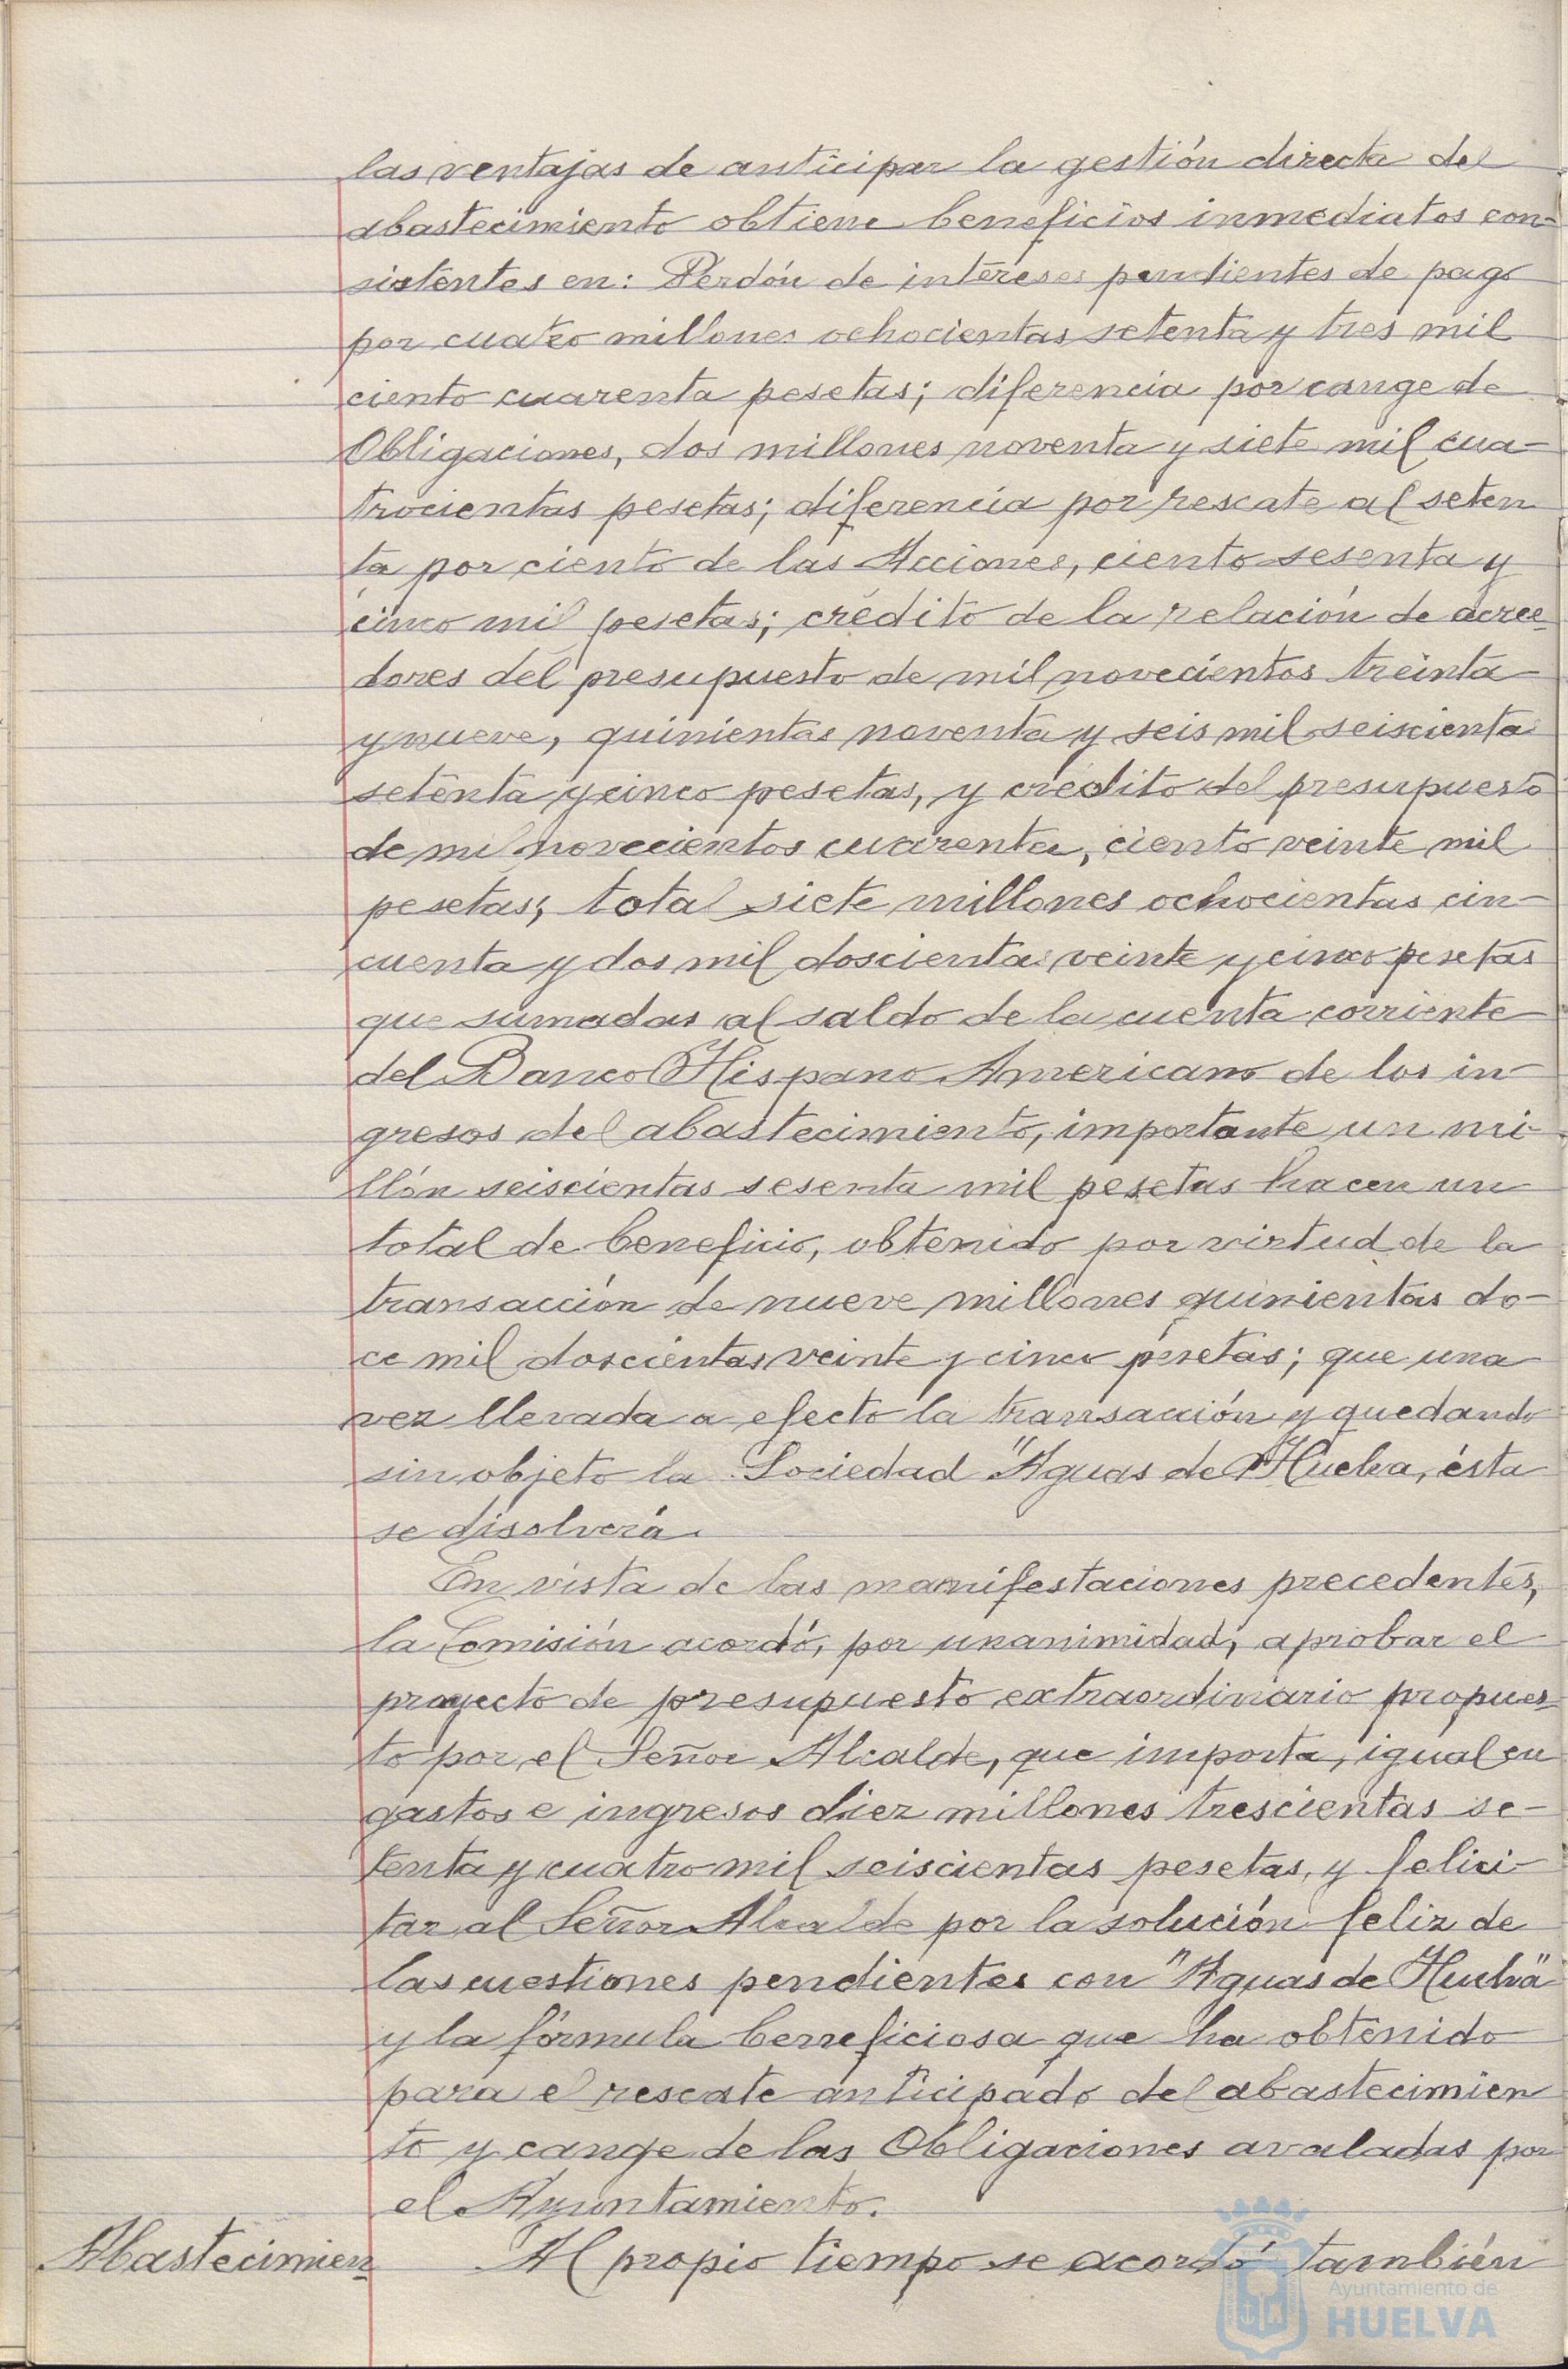 las ventajas de anticipar la gestión directa del
abastecimiento obtiene beneficios inmediatos con-
sistentes en: Perdón de intereses pendientes de pago
por cuatro millones ochocientas setenta y tres mil
ciento cuarenta pesetas; diferencia por cange de
Obligaciones, dos millones noventa y siete mil cua-
trocientas pesetas; diferencia por rescate al seten
ta por ciento de las Acciones, ciento sesenta y
cinco mil pesetas; crédito de la relación de acree-
dores del presupuesto de mil novecientos treinta
y nueve, quinientas noventa y seis mil seiscientas
setenta y cinco pesetas, y crédito del presupuesto
de mil novecientos cuarenta, ciento veinte mil
pesetas; total siete millones ochocientas cin-
cuenta y dos mil doscientas veinte y cinco pesetas
que sumadas al saldo de la cuenta corriente
del Banco Hispano Americano de los in-
gresos del abastecimiento, importante un mi-
llón seiscientas sesenta mil pesetas hacen un
total de beneficio, obtenido por virtud de la
transacción de nueve millones quinientas do-
ce mil doscientas veinte y cinco pesetas; que una
vez llevada a efecto la transacción y quedando
sin objeto la Sociedad "Aguas de Huelva, ésta
se disolverá.
En vista de las manifestaciones precedentes,
la Comisión acordó, por unanimidad, aprobar el
proyecto de presupuesto extraordinario propues-
to por el Señor Alcalde, que importa, igual en
gastos e ingresos diez millones trescientas se-
tenta y cuatro mil seiscientas pesetas, y felici-
tar al Señor Alcalde por la solución feliz de
las cuestiones pendientes con "Aguas de Huelva"
y la fórmula beneficiosa que ha obtenido
para el rescate anticipado del abastecimien
to y cange de las Obligaciones avaladas por
el Ayuntamiento.
Abastecimien_ Al propio tiempo se acordó también
Ayuntamiento de
HUELVA